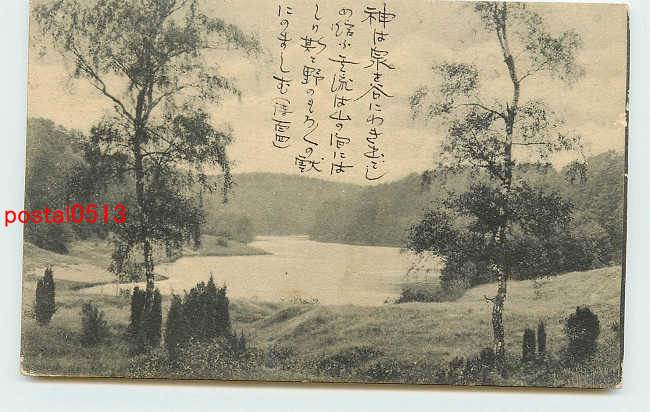 神は泉を谷にわきいだし
め給ふ其流は山の間には
しり斯て野のもろ〱の獣
にのましむ
postal0513